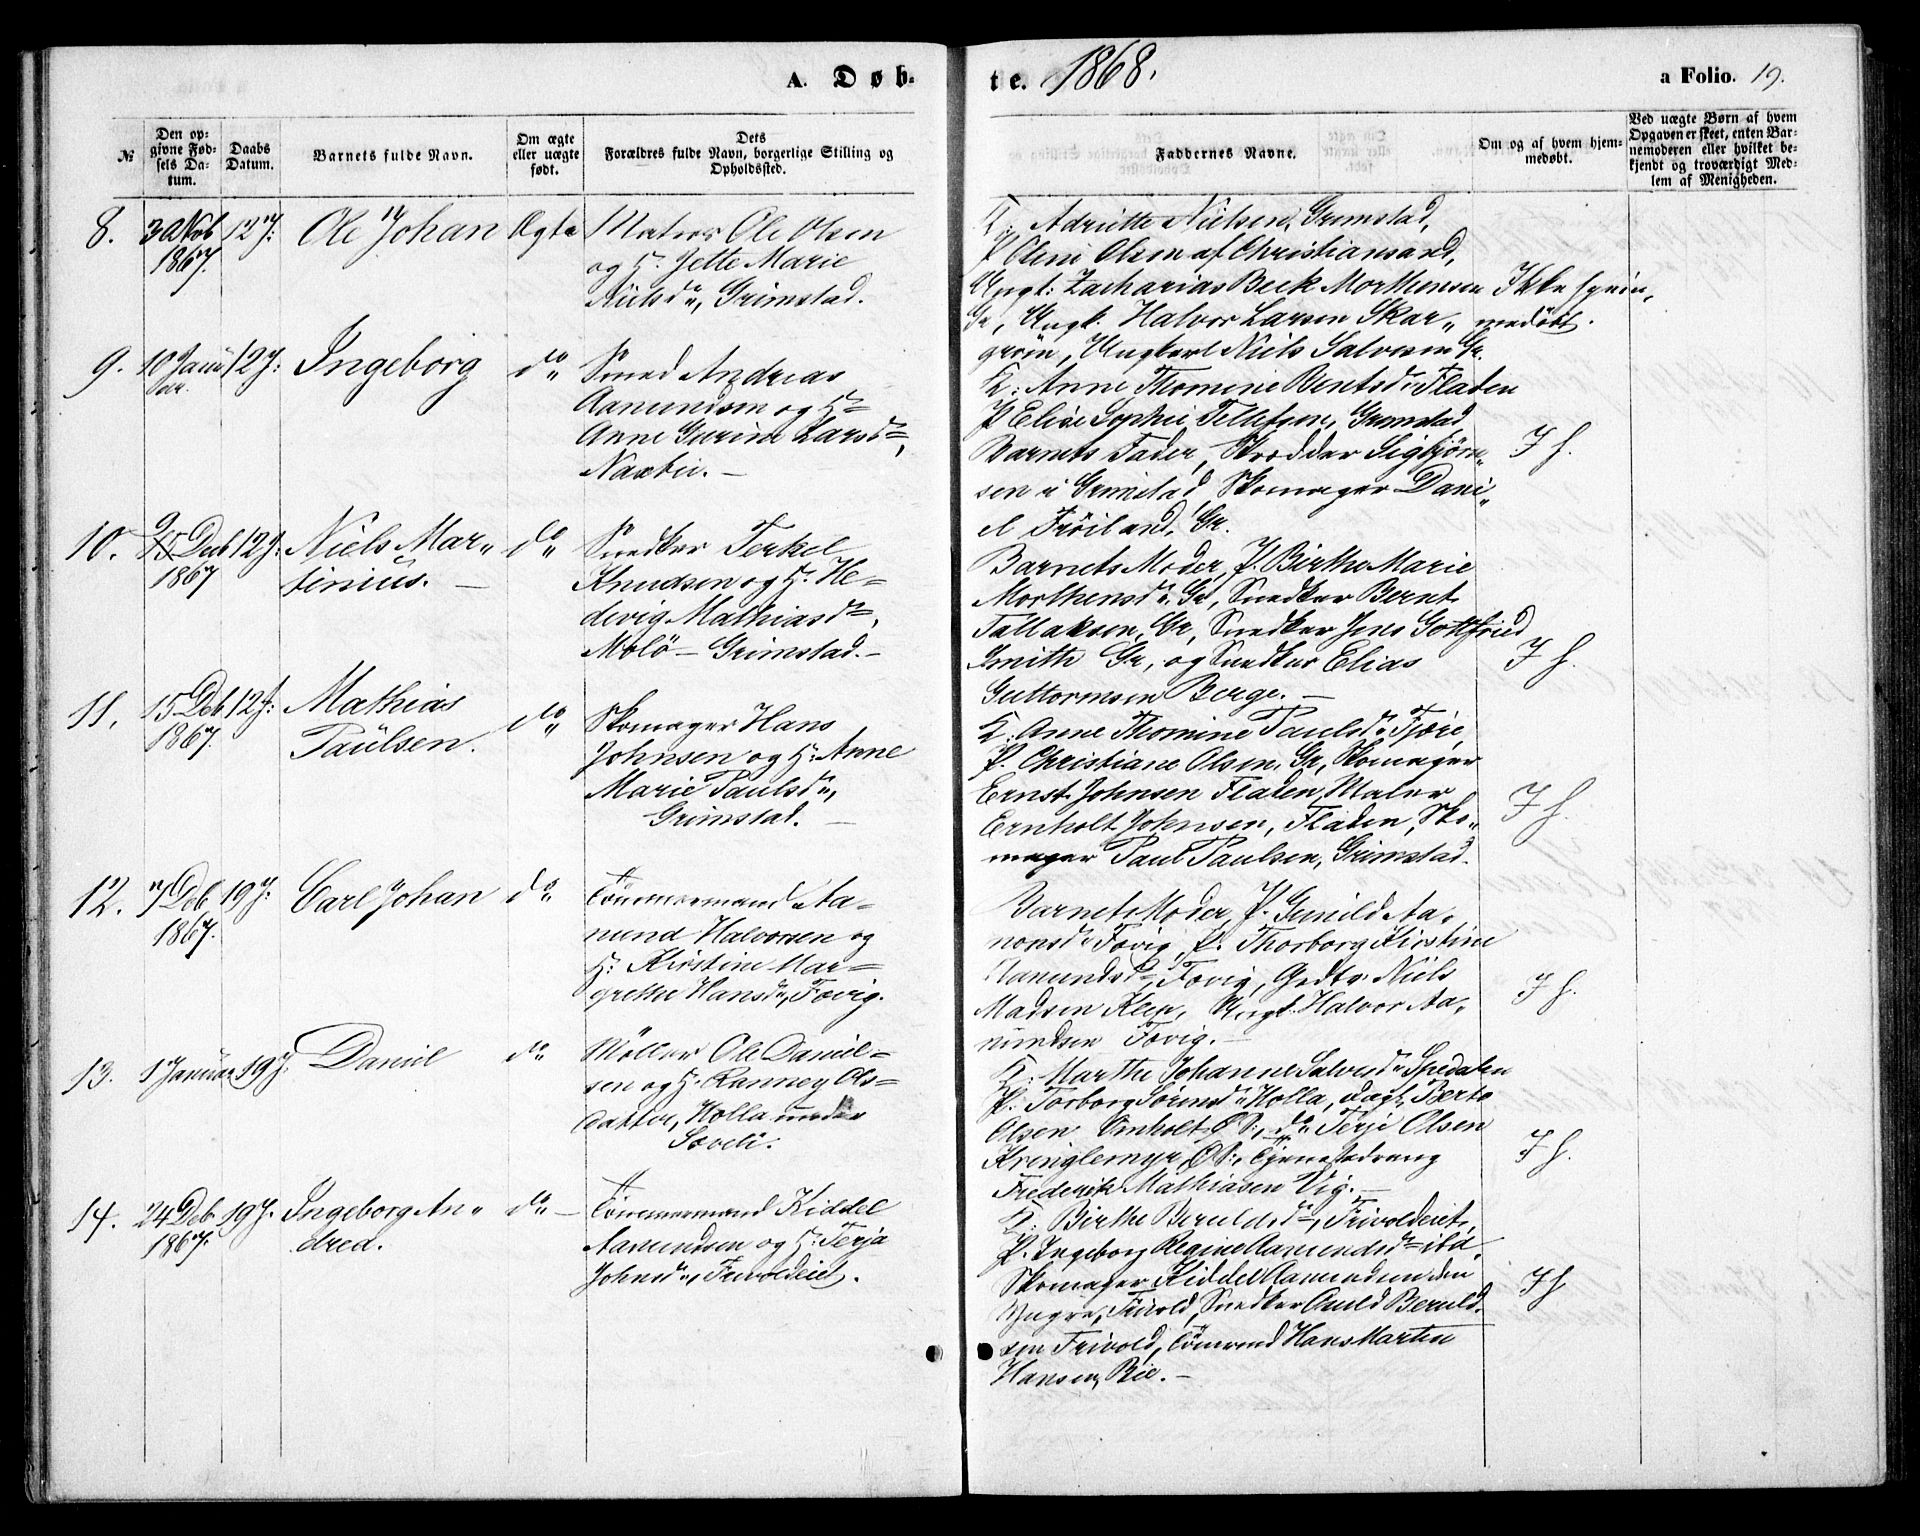 A. Døb-
te. 1868.
a Folio. 19.
№
Den op-
givne Fød-
sels Da-
tum.
Daabs
Datum.
Barnets fulde Navn.
Om ægte
eller uægte
født.
Dets
Forældres fulde Navn, borgerlige Stilling og
Opholdssted.
Faddernes Navne.
Om og af hvem hjem-
medøbt.
Ved uægte Børn af hvem
Opgaven er skeet, enten Bar-
nemoderen eller hvilket be-
kjendt og troværdigt Med-
lem af Menigheden.
8.
30 Nob
1867.
12 J:
Ole Johan
Ægte
Matros Ole Olsen
og H. Jette Marie
Nielsdr, Grimstad.
K. Adriette Nielsen, Grimstad,
P Oleni Olsen af Christiansand,
Ungk: Zacharias Beck Morthensen
Gr, Ungk. Halvor Larsen Skar„
grön, Ungkarl Niels Salvesen Gr.
Ikke hjem„
medöbt.
9.
10 Janu
ar.
12 J:
Ingeborg
do
Smed Andreas
Aanundsen og H=
Anne Gurine Larsd=,
K: Anne Thomine Berntsd Fladen
P Elise Sophie Tellefsen, Grimstad
Barnets Fader, Skrædder Sigbjörn„
sen i Grimstad Skomager Dani„
el Fröiland, Gr.
J h.
10.
9
15 Deb
1867
12 J:
Niels Mar„
tinius. —
do
Snedker Terkel
Knudsen og H. He=
devig Mathiasd=,
Molö — Grimstad. —
Barnets Moder, P. Birthe Marie
Morthensd. Gr, Snedker Bernt
Tallaksen, Gr, Snedker Jens Gottfried
Smith Gr, og Snedker Elias
Guttormsen Berge. —
J h.
11.
15 Deb
1867.
12 J:
Mathias
Paulsen.
do
Skomager Hans
Johnsen og H: Anne
Marie Paulsd,
Grimstad. —
K: Anne Thomine Paulsd Fjære,
P. Christiane Olsen, Gr, Skomager
Ernst Johnsen Fladen, Maler
Ernholt Johnsen, Fladen, Sko„
mager Paul Paulsen, Grimstad.
J h.
12.
7 Deb
1867.
19 J:
Carl Johan
do
Tömmermand Aa=
nund Halvorsen og
H: Kirstine Mar=
grethe Hansd, Fævig.
Barnets Moder, P. Gunild Aa„
nonsd Fævig, P. Thorborg Kirstine
Aanundsd=, Fævig, Gdbr Niels
Madsen Klep, Ungk. Halvor Aa„
nundsen Fævig. —
J h.
13.
1 Januar
19 J.
Daniel
do
Möller Ole Daniel=
sen og H. Ranney Ols=
datter, Holla under
K: Marthe Johanne Salvesd Spedalen
P. Torborg Sörensd Holla, Berte
Olsen Omholt, ØS:, do Terje Olsen
Kringlemyr, ØS:, Tjenestedreng
Frederik Mathiasen Vig. —
J h.
14.
24 Deb
1867.
19 J.
Ingeborg An„
drea.
do —
Tömmermand Kiddel
Aanundsen og H: Terja
Johnsd, Frivoldeiet.
K: Birthe Beruldsd=, Frivoldeiet,
P. Ingeborg Regine Aanundsd= ibd,
Skomager Kiddel Aanundsen den
Yngre, Frivold, Snedker Berulds„
sen Frivold, Tömmand Hans Martin
Hansen, Bie. —
J h